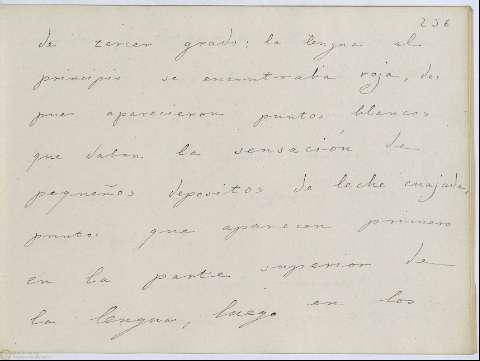 236
de tercer grado; la lengua al
principio se encontraba roja, des
pues aparecieron puntos blancos
que daban la sensación de
pequeños depositos de leche cuajada,
puntos que aparecen primero
en la parte superior de
la lengua, luego en los